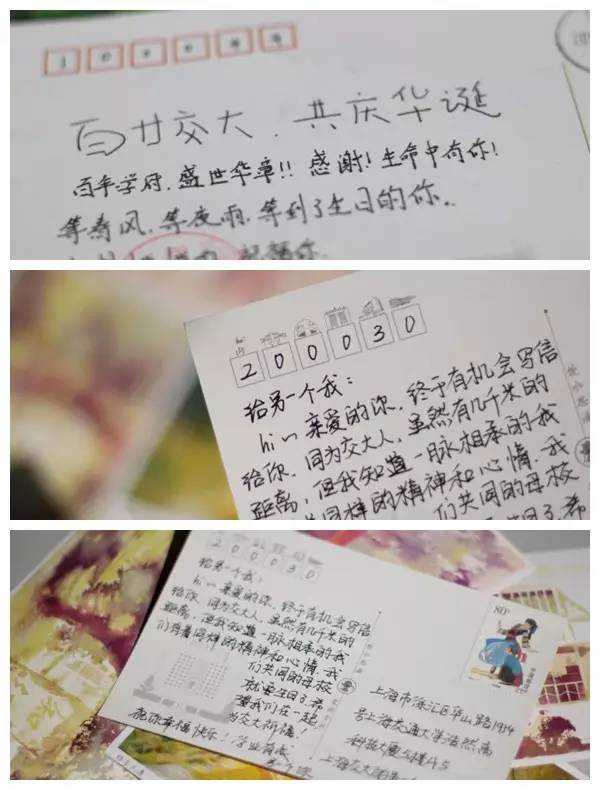 百廿交大,共庆华诞
百年学府,盛世华章!!感谢!生命中有你!
等春风,等夜雨,等到了生日的你.
200030
给另一个我:
hi~亲爱的你,终于有机会写信
给你,同为交大人,虽然有几千米的
距离,但我知道一脉相承的我
同样的精神和心情,我
们共同的母校
200030
给另一个我:
hi~亲爱的你,终于有机会写信
给你,同为交大人,虽然有几千米的
距离,但我知道一脉相承的我
们有着同样的精神和心情,我
们共同的母校
就要生日了,希
望我们在一起
为交大祈福!
祝你幸福快乐!学业有成
80
上海市徐汇区华山路1954
号上海交通大学浩然高
科技大厦